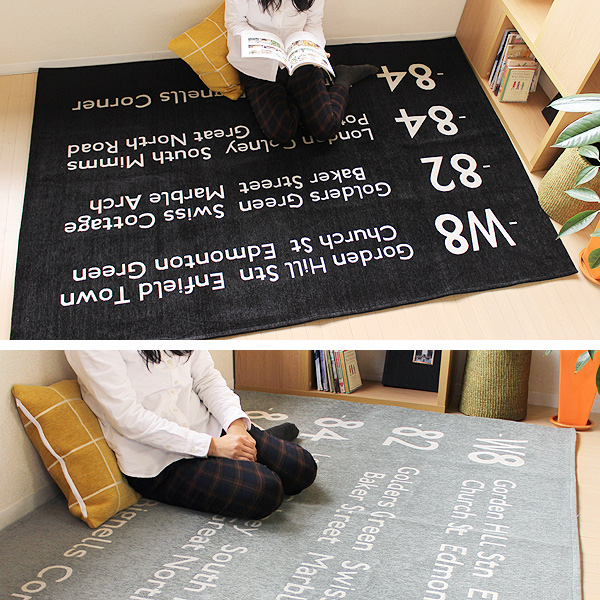 -W8-
Gorden Hill Stn Enfield Town
Church St Edmonton Green
-82
Golders Green Swiss Cottage
Baker Street Marble Arch
-84-
London Colney South Mimms
Great North Road
-84-
Signells Corner
-W8-
Gorden Hill Stn
Church St Edmon
-82-
Golders Green Swiss
Baker Street Marbl
-84-
South
Great North
-8
Signells Corner